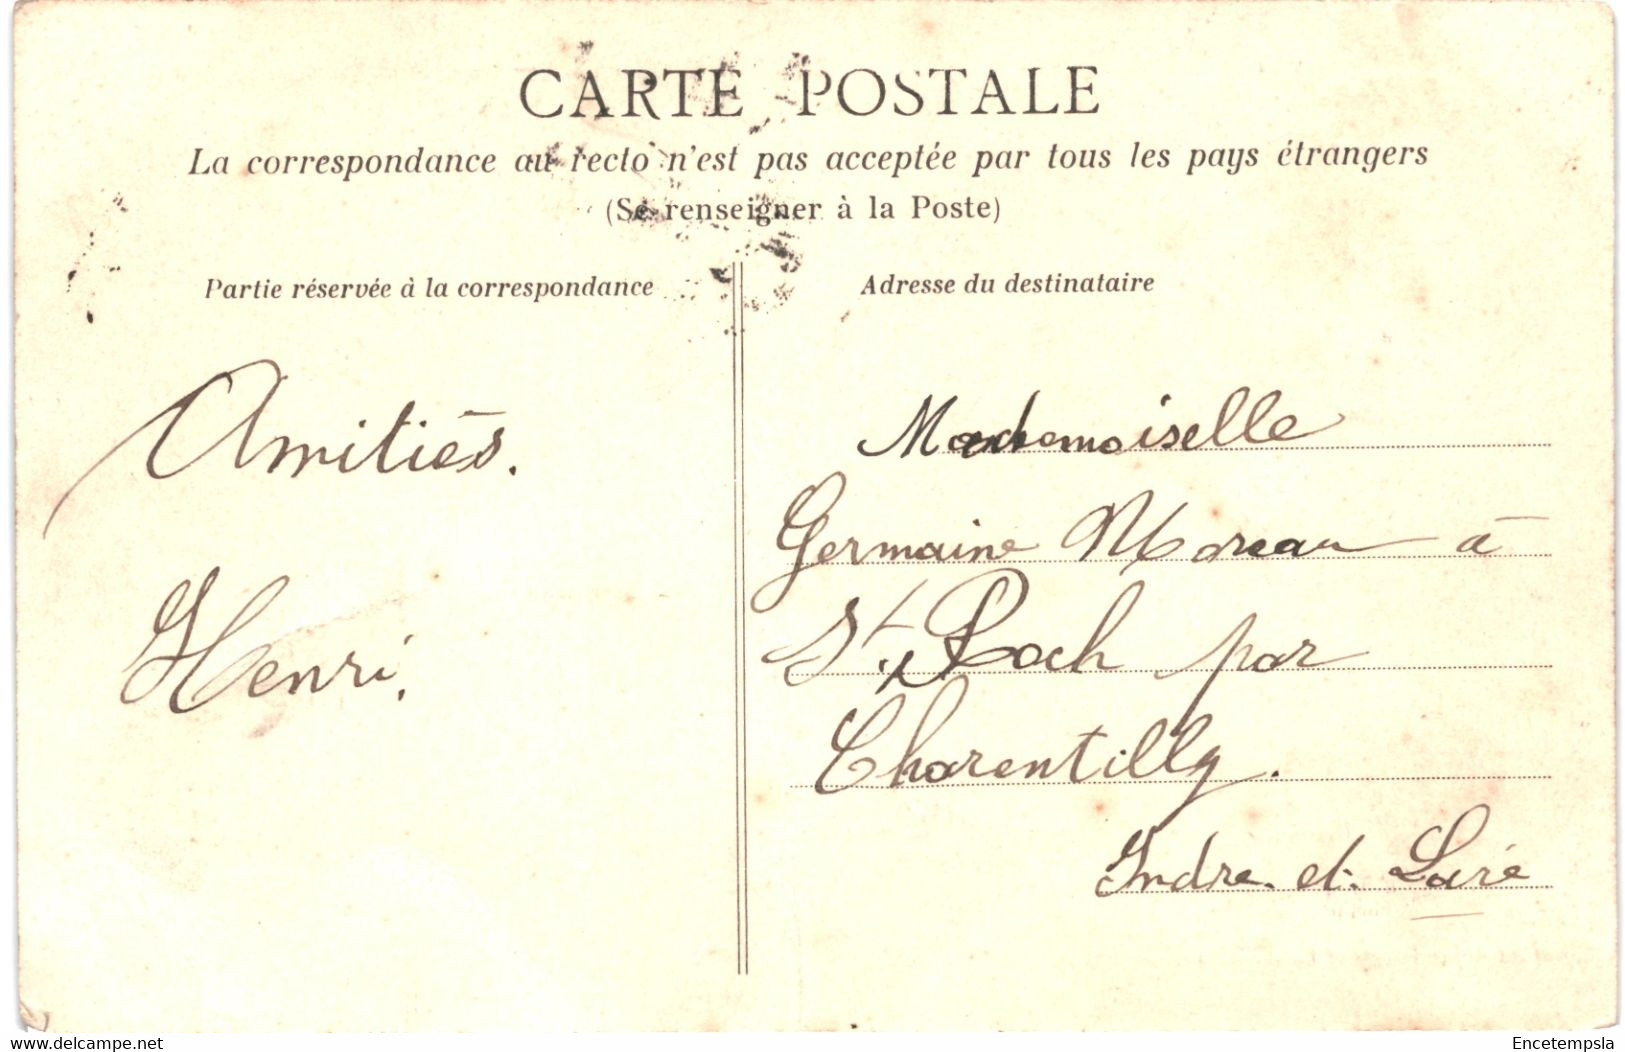 CARTE POSTALE
La correspondance au recto n'est pas acceptée par tous les pays étrangers
(Se renseigner à la Poste)
Partie réservée à la correspondance
Amitiés.
Henri.
Adresse du destinataire
Mademoiselle
Germaine Moreau à
St Roch par
Charentilly.
Indre. et. Loire
www.delcampe.net
Encetempsla